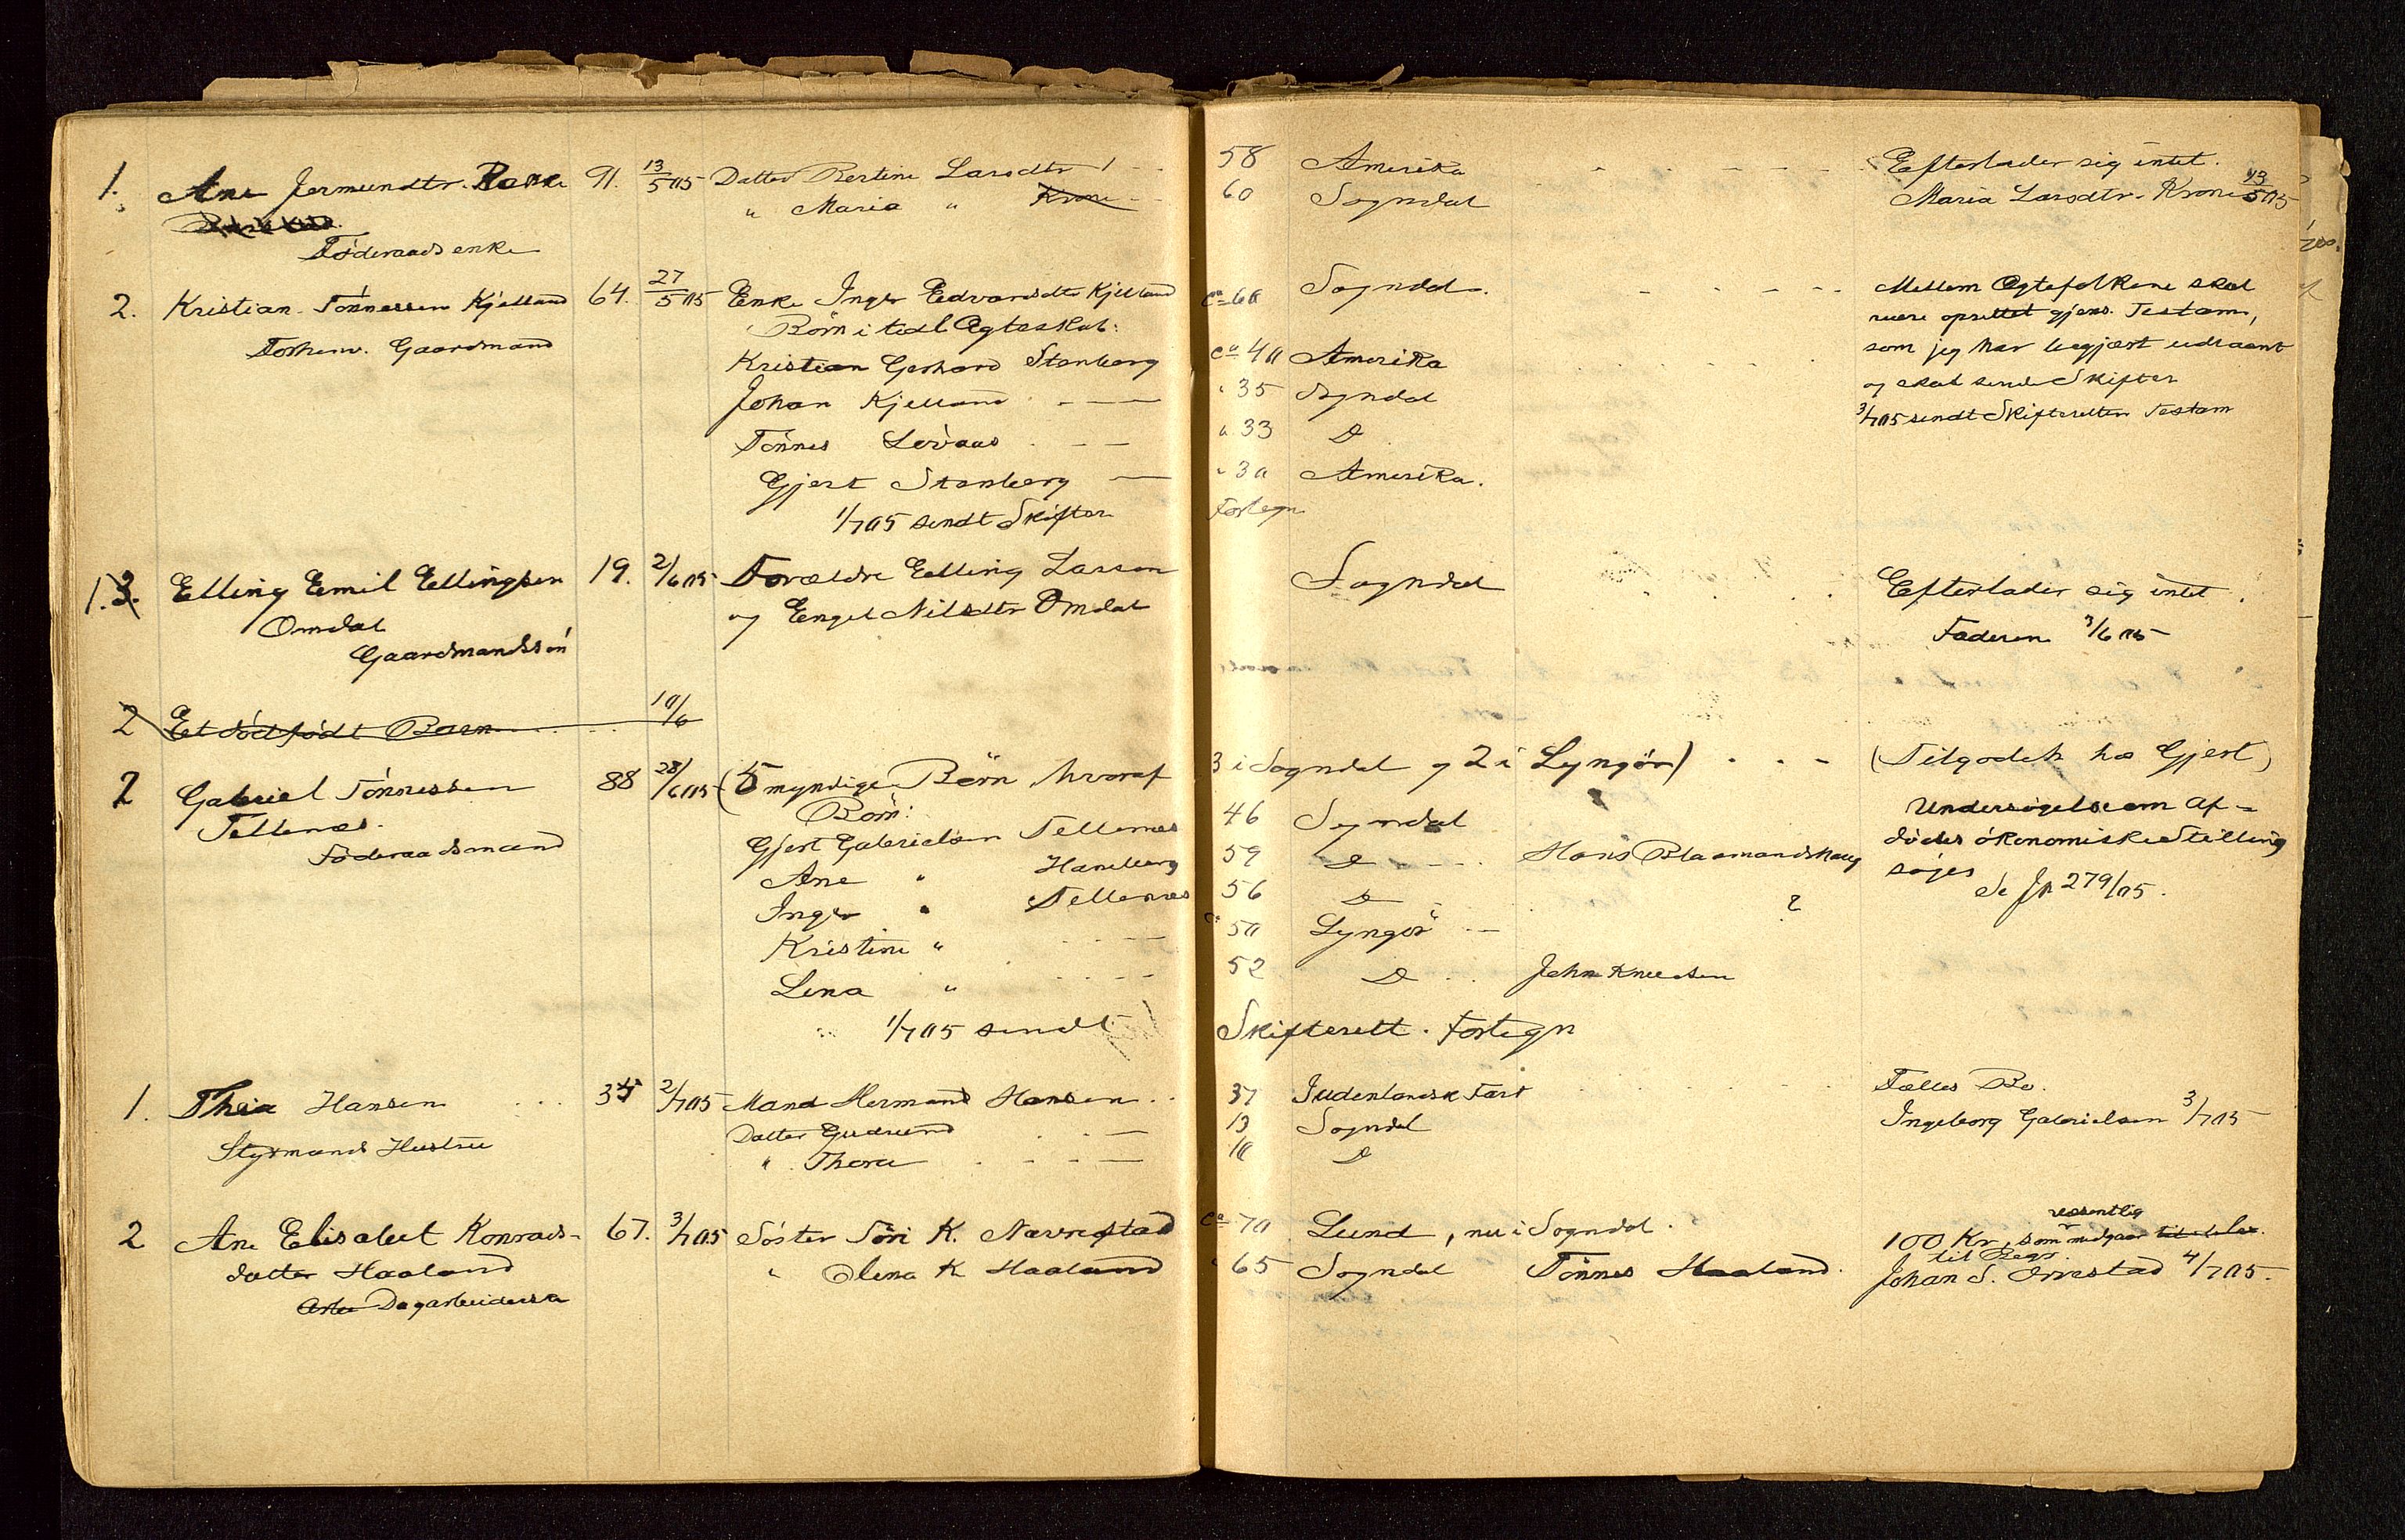 1. Ane Jermundtr. Rekke 91. 13/5 05 Datter Bertine Larsdtr
" Maria " Krone
Föderaadsenke
2. Kristian Tönnessen Kjelland 64. 27/5 05 Enke Inger Edvardsdtr Kjelland
Börn i tidl Ægteskab:
Forhenv. Gaardmand
Kristian Gerhard Stenberg
Johan Kjelland
Tönnes Lövaas
Gjert Stenberg
1/7 05 sendt Skifter
1. 3. Elling Emil Ellingsen 19. 2/6 05 Forældre Elling Larsen
Omdal og Engel Nilsdtr Omdal
Gaardmandssön
2 Et dödfödt Barn 10/6
2 Gabriel Tönnessen 88 28/6 05 (5 myndige Börn hvoraf
Tellenæs. Börn:
Föderaadsmand Gjert Gabrielsen Tellenes
Ane " Haneberg
Inger " Tellenes
Kristine "
Lina "
" 1/7 05 sendt
1. Thea Hansen 35 2/7 05 Mand Hermand Hansen
Datter Gudrund
Styrmands Hustru
" Thora
2 Ane Elisabet Konrads- 67. 3/7 05 Söster Siri K. Navrestad
datter Haaland " Olena K Haaland
Arbe Dagarbeiderske
58 Amerika Efterlader sig intet.
60 Sogndal Maria Larsdtr. Krone 13/5 05
ca 60 Sogndal. Mellem Ægtefolkene skal
være oprettet gjens. Testam,
ca 40 Amerika som jeg har begjært udlaant
" 35 Sogndal og skal sende Skifter
" 33 D 3/7 05 sendt Skifteretten Testam
" 30 Amerika.
Fortegn
Sogndal Efterlader sig intet.
Faderen 3/6 05
3 i Sogndal og 2 i Lyngör) (Tilgodeh hos Gjert)
46 Sogndal Undersögelse om af-
59 D Hans Blaamandshaug dödes ökonomiske Stilling
56 D ? söges
Se Jr 279/05.
ca 50 Lyngör
52 D John Knudsen
Skifterett. Fortegn
37 Iudenlandsk Fart Fælles Bo.
13 Sogndal Ingeborg Gabrielsen 3/7 05
10 D
ca 70 Lund, nu i Sogndal. 100 Kr, som væsentlig medgaar
til Begr.
" 65 Sogndal Tönnes Haaland. Johan S. Ørrestad 4/7 05.